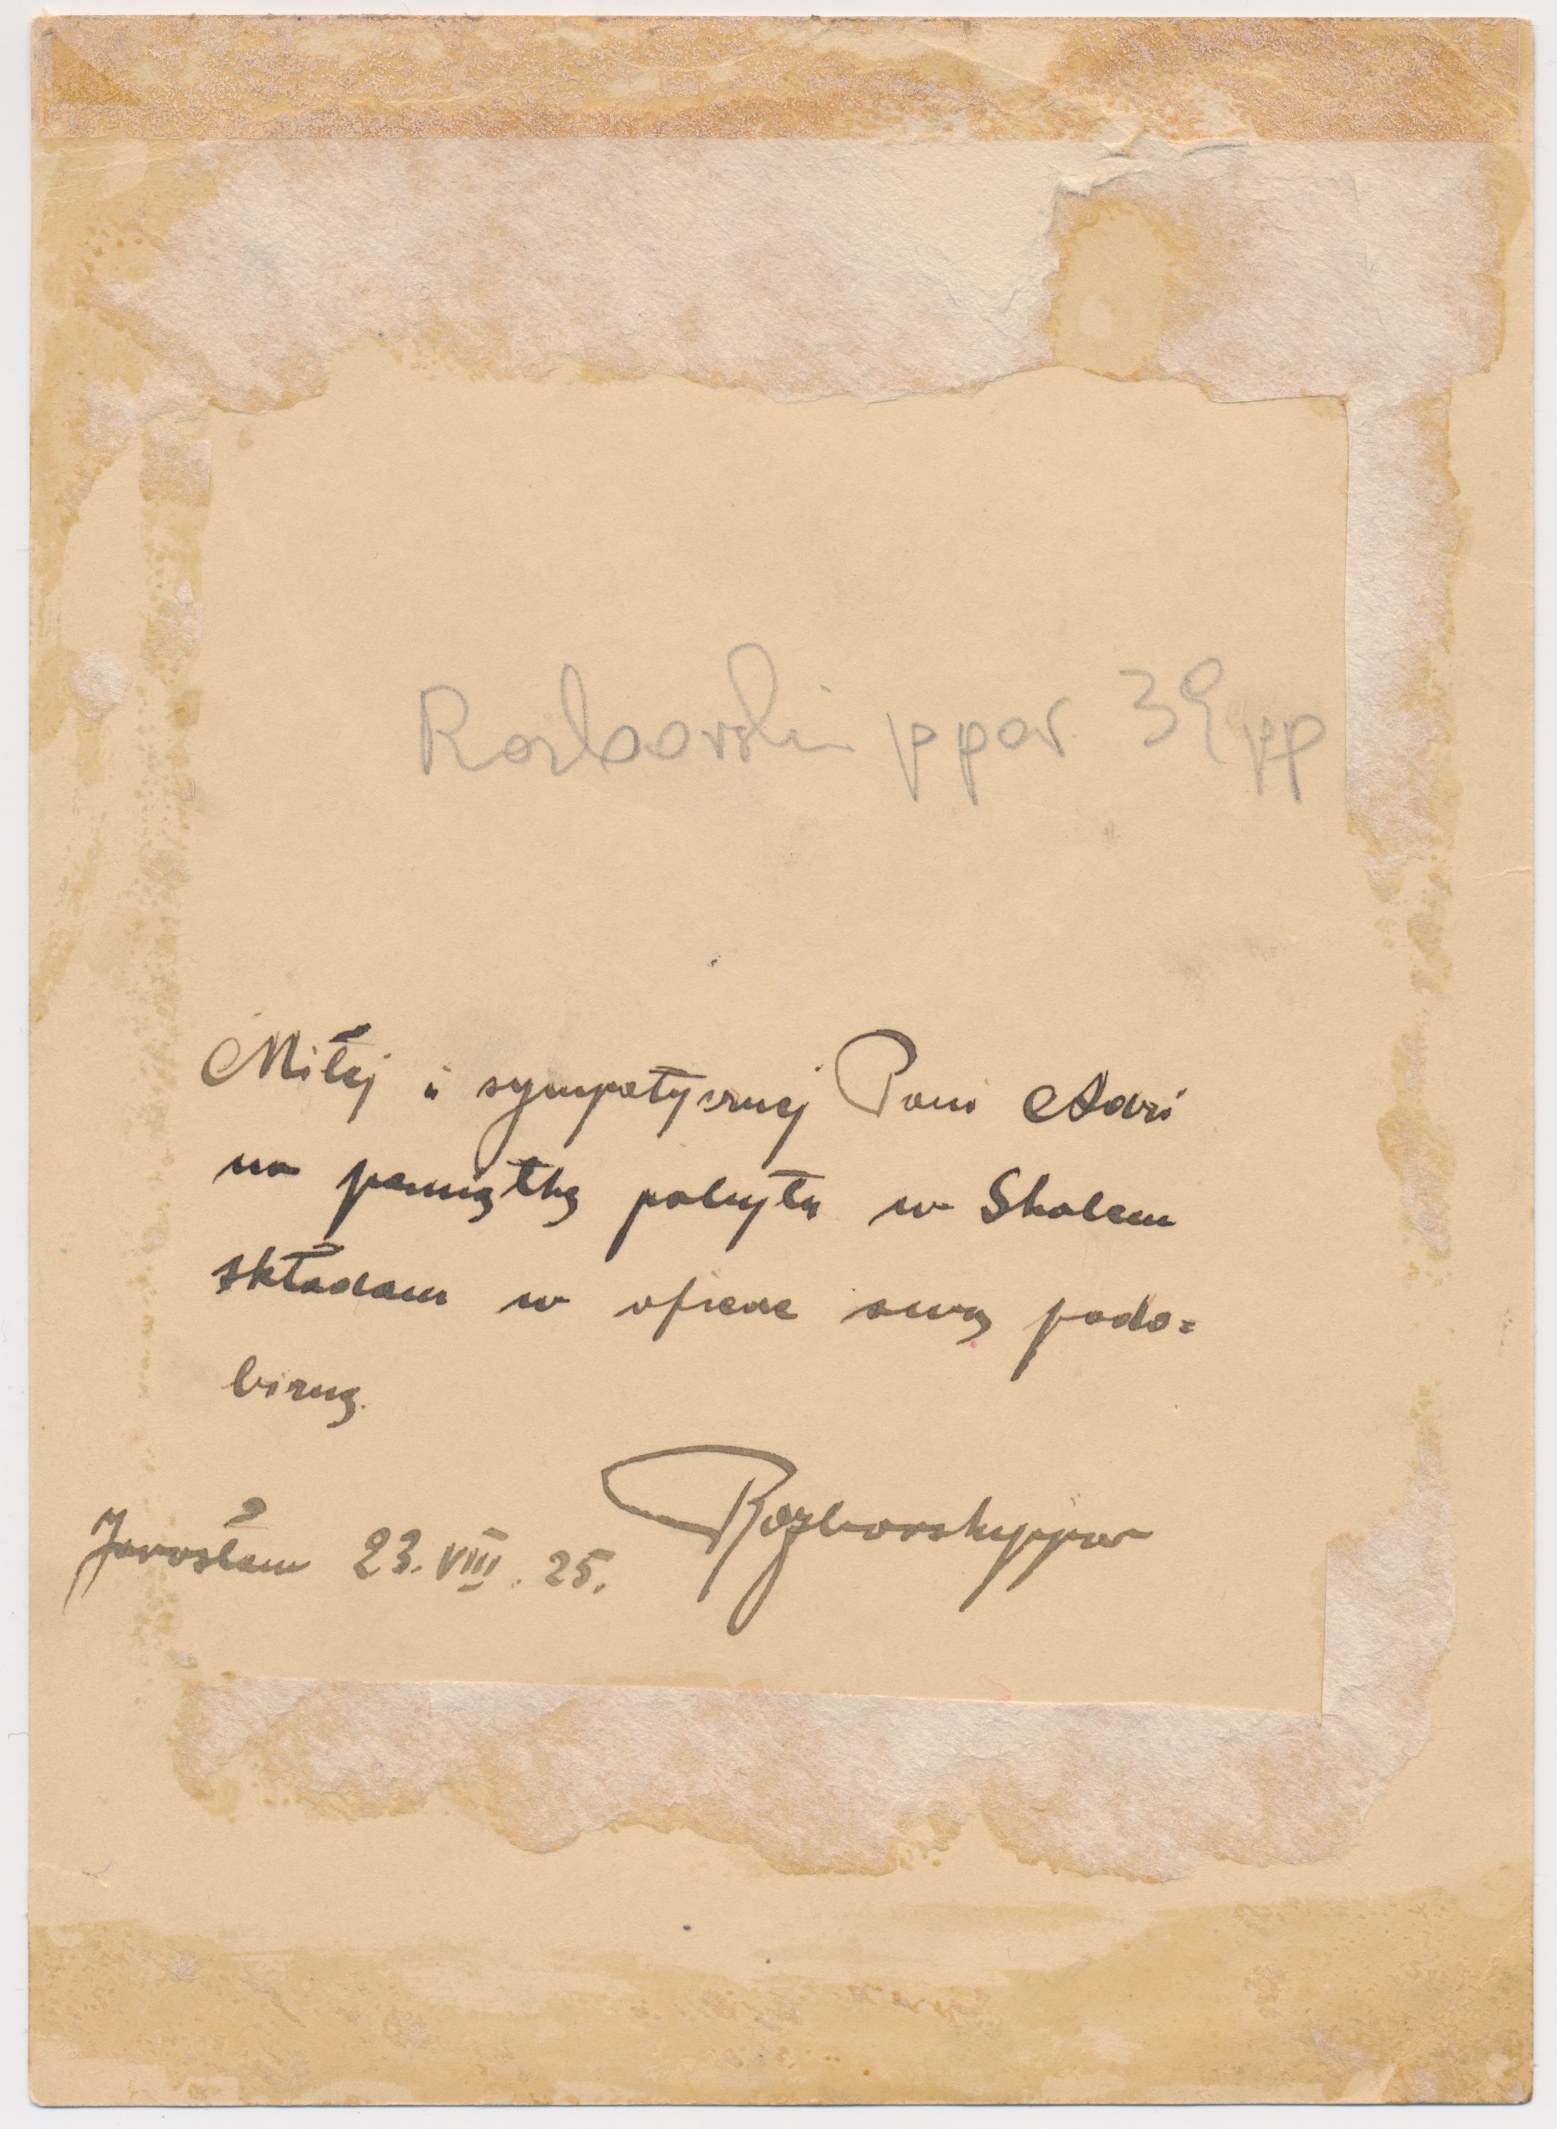 Rozborski ppor. 39 pp
Miłej i sympatycznej Pani Adzi
na pamiątkę pobytu w Skolem
składam w ofierze swą podo=
biznę.
Rozborski ppor
Jarosław 23.VIII.25.